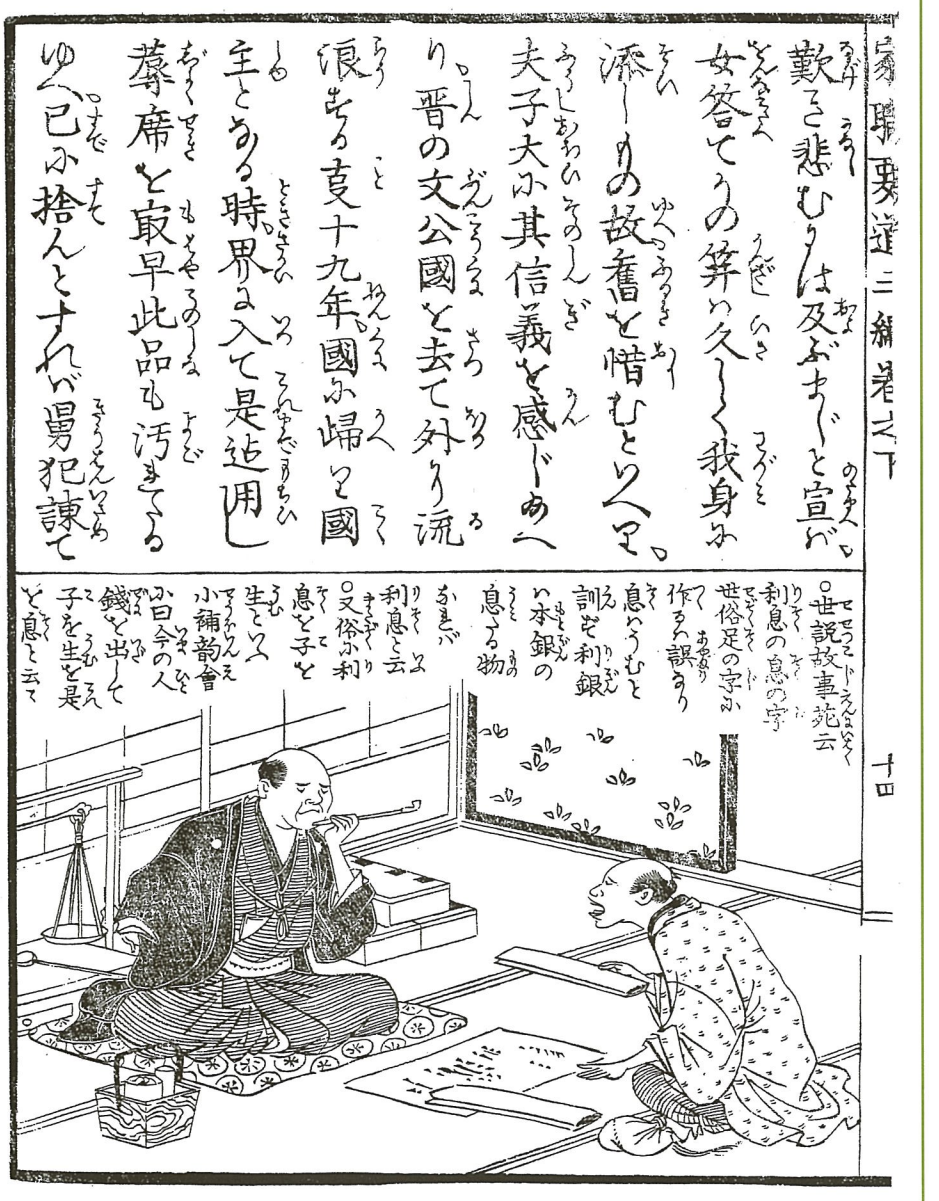 家職要道二編巻之下
十四
歎き悲むには及ぶまじと宣ば、
女答てかの簪は久しく我身に
添しもの故舊を惜むといへり。
夫子大に其信義を感じ給へ
り。晋の文公國を去て外に流
浪する事十九年。國に歸りて國
主となる時。界に入て是迠用し
蓐席を㝡早此品も汚れたる
ゆへ。已に捨んとすれば舅犯諌て
○世説故事苑云
利息の息の字
世俗足の字に
作るハ誤なり
息ハうむと
訓ず利銀
ハ本銀の
息たる物
なれば
利息と云
○又俗に利
息を子を
生といへ
小補韵會
に曰今の人
錢を出して
子を生を是
を息と云て